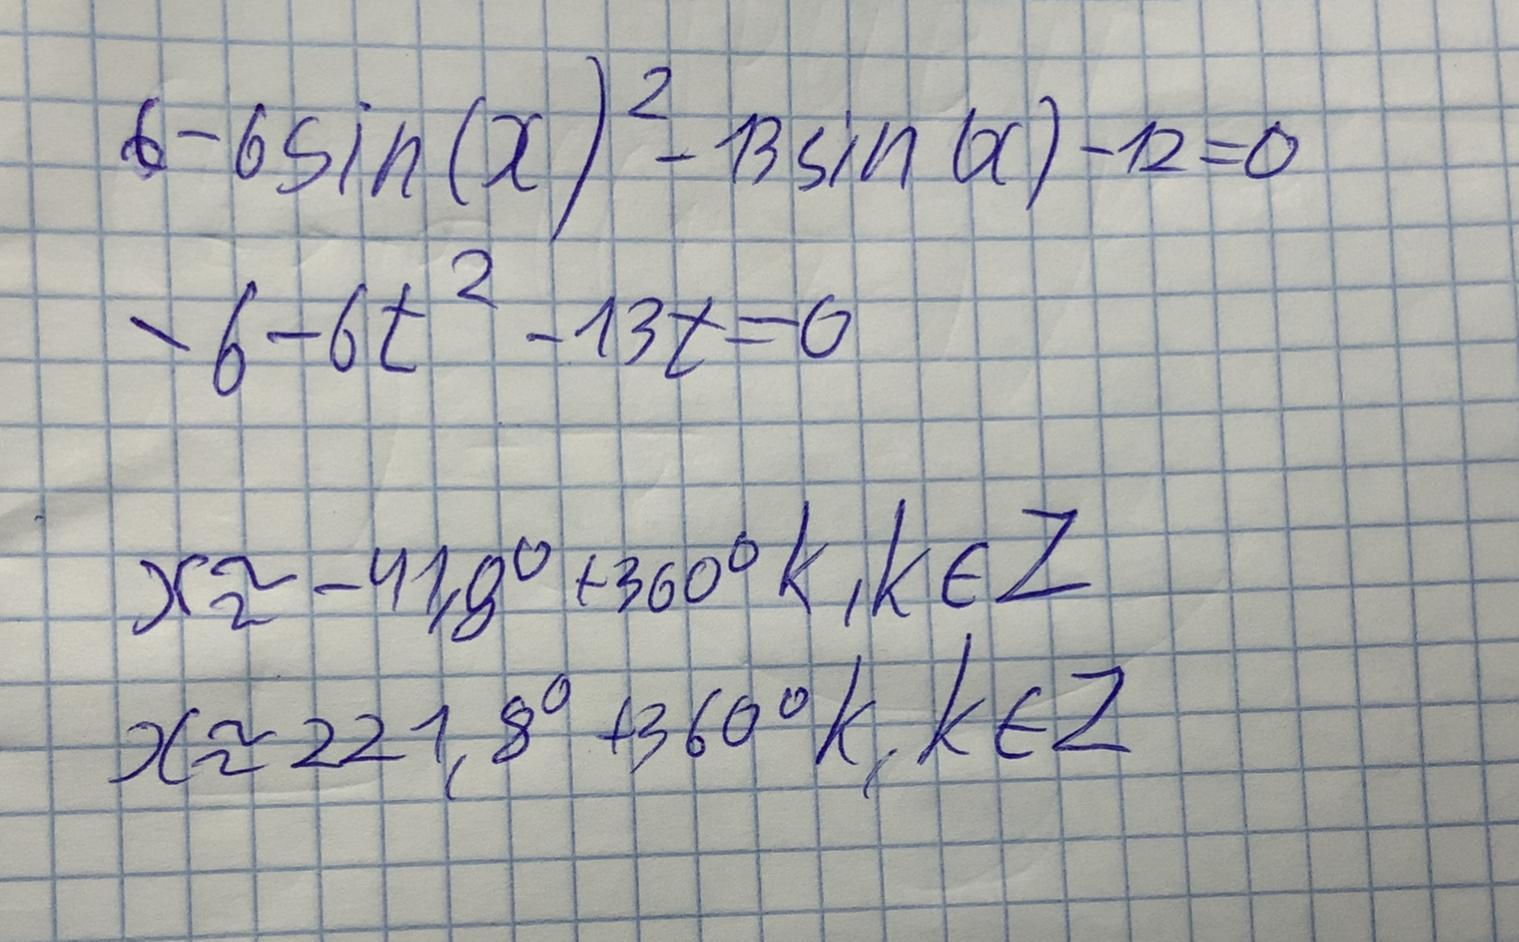 6-6sin(x)²-13sin(x)-12=0
-6-6t²-13t=0
x≈-41,8⁰+360⁰k,k∈Z
x≈221,8⁰+360⁰k,k∈Z